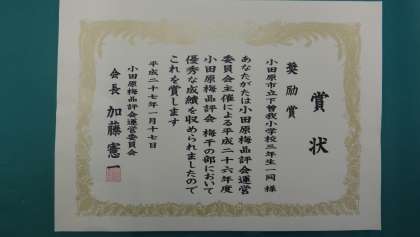 賞状
奨励賞
小田原市立下曽我小学校三年生一同 様
あなたがたは小田原梅品評会運営
委員会主催による平成二十六年度
小田原梅品評会 梅干の部において
優秀な成績を収められましたので
これを賞します
平成二十七年一月十七日
小田原梅品評会運営委員会
会長 加藤憲一